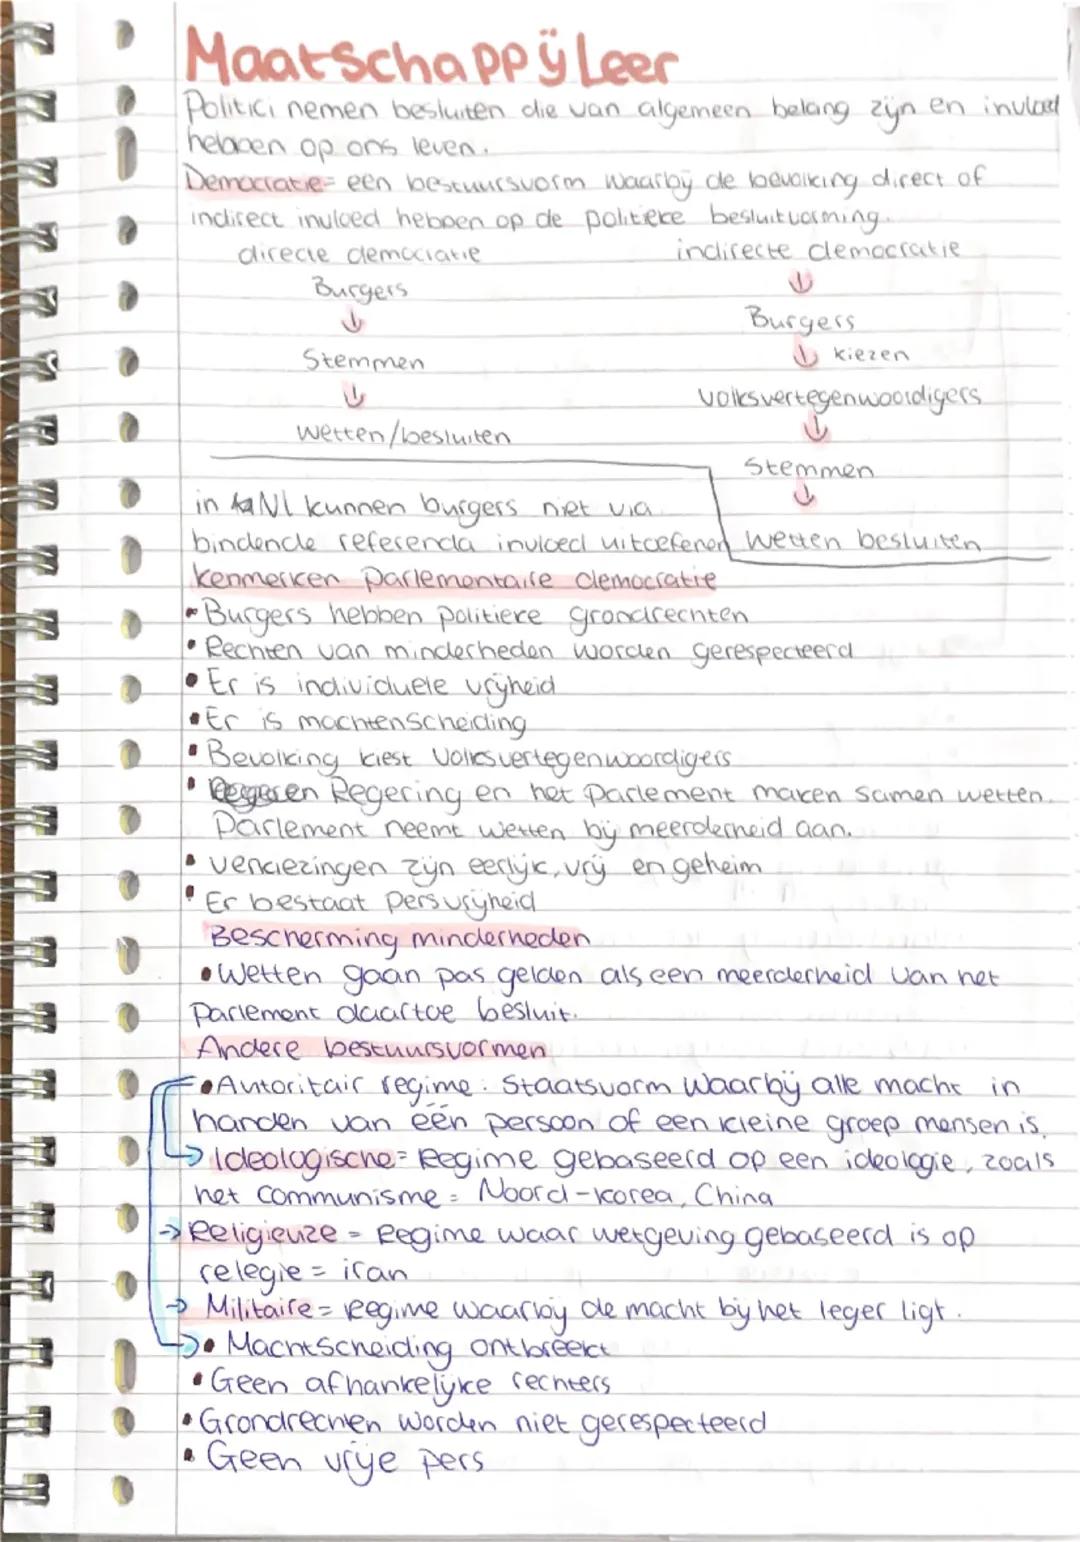 Maatschappÿleer
Politici nemen besluiten die van algemeen belang zÿn en invloed
hebben op ons leven.
Democratie= een bestuursvorm waarbÿ de bevolking direct of
indirect invloed hebben op de politieke besluitvorming.
directe democratie
Burgers
↓
Stemmen
↓
wetten/besluiten
indirecte democratie
↓
Burgers
↓ kiezen
volksvertegenwoordigers
↓
Stemmen
↓
wetten besluiten
in NL kunnen burgers niet via
bindende referenda invloed uitoefenen
kenmerken parlementaire democratie
• Burgers hebben politieke grondrechten
• Rechten van minderheden worden gerespecteerd
• Er is individuele vrÿheid
• Er is machtenscheiding
• Bevolking kiest volksvertegenwoordigers
• Regering en het parlement maken samen wetten.
Parlement neemt wetten bÿ meerderheid aan.
• verkiezingen zÿn eerlÿk, vrÿ en geheim
• Er bestaat persvrÿheid
Bescherming minderheden
• Wetten gaan pas gelden als een meerderheid van het
parlement daartoe besluit.
Andere bestuursvormen
• Autoritair regime: Staatsvorm waarbÿ alle macht in
handen van één persoon of een kleine groep mensen is.
→ Ideologische= Regime gebaseerd op een ideologie, zoals
het communisme = Noord-korea, China
→ Religieuze = Regime waar wetgeving gebaseerd is op
relegie = iran
→ Militaire = Regime waarbÿ de macht bÿ het leger ligt.
→ • Machtscheiding ontbreekt
• Geen afhankelÿke rechters
• Grondrechten worden niet gerespecteerd
• Geen vrÿe pers